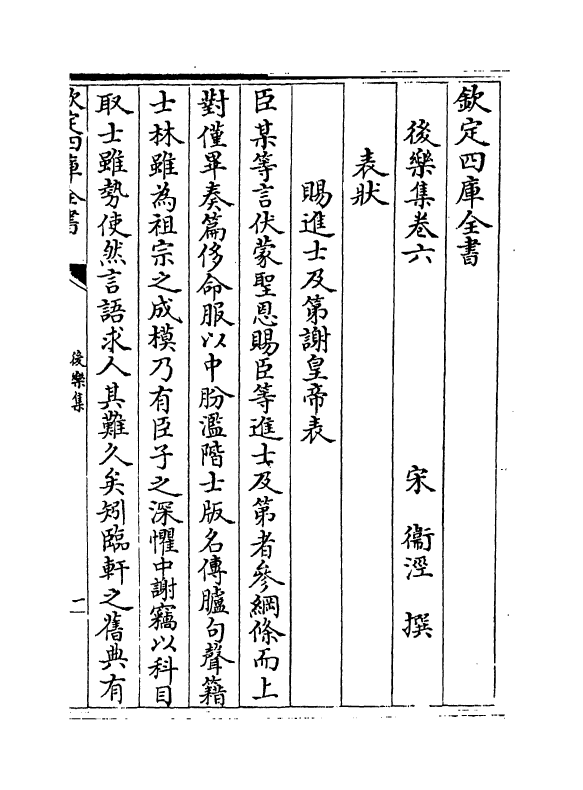 欽定四庫全書
後樂集卷六
宋　衞涇　撰
表狀
賜進士及第謝皇帝表
臣某等言伏蒙聖恩賜臣等進士及第者參綱條而上
對僅畢奏篇侈命服以中朌濫階士版名傳臚句聲籍
士林雖為祖宗之成模乃有臣子之深懼中謝竊以科目
取士雖勢使然言語求人其難久矣矧臨軒之舊典有
欽定四庫全書
後樂集
一